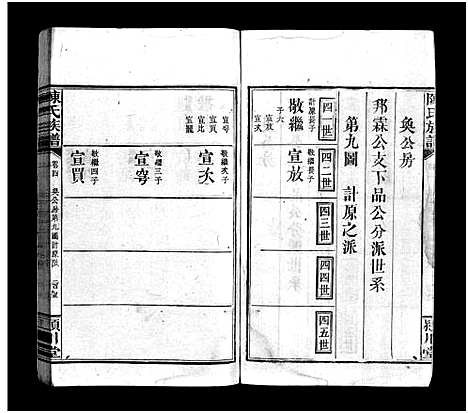 陳氏族譜
奐公房
邦霖公支下品公分派世系
第九圖 計原之派
四一世
四二世
四三世
四四世
四五世
敬繼
計原長子
子六
宣放
宣次
宣放
敬繼長子
宣雩
宣比
宣寵
宣次
敬繼次子
宣雩
敬繼三子
宣買
敬繼四子
潁川堂
陳氏族譜
卷四
奐公房第九圖計原派
潁川堂